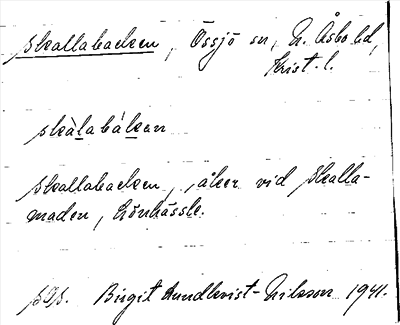 Skallabacken, Össjö sn, N. Åsbo hd,
Krist. l.
skàlabákan
Skallabacken, åker vid Skalla-
maden, Lönhässle.
Birgit Nilsson 1941.